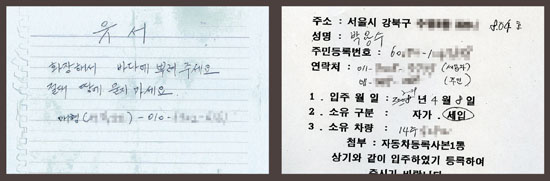 유서
화장해서 바다에 뿌려주세요
절대 땅에 묻지 마세요.
매형( ) -010-
주소 : 서울시 강북구 804호
성명 : 박용수
주민등록번호 : 60
연락처 : 011-
1. 입주 월 일 : 년 4월 8일
2. 소유 구분 : 자가, 세입
3. 소유 차량 : 14
첨부 : 자동차등록사본1통
상기와 같이 입주하였기 등록하여
주시기 바랍니다